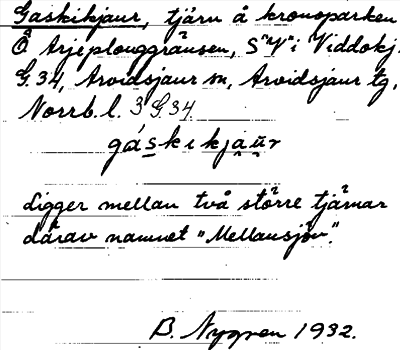 Gaskikjaur, tjärn å kronoparken
Ö Arjeplouggränsen, S"V" i Viddokj.
G.34, Arvidsjaur sn, Arvidsjaur tg,
Norrb. l. 3 G.34
gáskikjau̯r
Ligger mellan två större tjärnar
därav namnet "Mellansjön".
B. Nygren 1932.